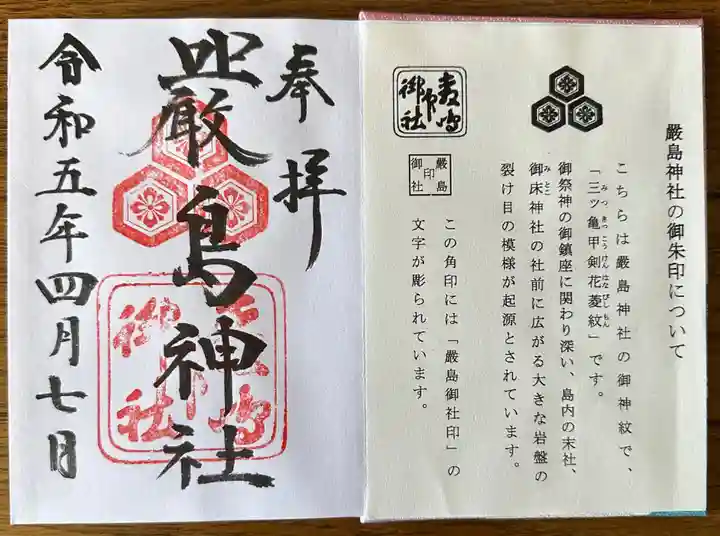 厳島神社の御朱印について
こちらは厳島神社の御神紋で、
「三ツ亀甲剣花菱紋」です。
みつきっこうけんはなびしもん
御祭神の御鎮座に関わり深い、島内の末社、
御床神社の社前に広がる大きな岩盤の
みとこ
裂け目の模様が起源とされています。
この角印には「嚴島御社印」の
文字が彫られています。
嚴島
印
御社
奉拝
嚴島神社
令和五年四月七日